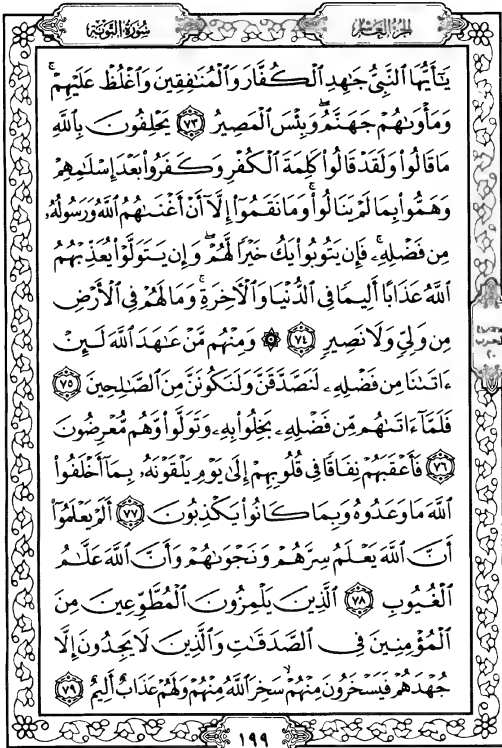 سُورَةُ التَّوْبَةِ
الجُزْءُ العَاشِرُ
يَٰٓأَيُّهَا ٱلنَّبِىُّ جَٰهِدِ ٱلْكُفَّارَ وَٱلْمُنَٰفِقِينَ وَٱغْلُظْ عَلَيْهِمْ ۚ
وَمَأْوَىٰهُمْ جَهَنَّمُ ۖ وَبِئْسَ ٱلْمَصِيرُ ٧٣ يَحْلِفُونَ بِٱللَّهِ
مَا قَالُوا۟ وَلَقَدْ قَالُوا۟ كَلِمَةَ ٱلْكُفْرِ وَكَفَرُوا۟ بَعْدَ إِسْلَٰمِهِمْ
وَهَمُّوا۟ بِمَا لَمْ يَنَالُوا۟ ۚ وَمَا نَقَمُوٓا۟ إِلَّآ أَنْ أَغْنَىٰهُمُ ٱللَّهُ وَرَسُولُهُۥ
مِن فَضْلِهِۦ ۚ فَإِن يَتُوبُوا۟ يَكُ خَيْرًا لَّهُمْ ۖ وَإِن يَتَوَلَّوْا۟ يُعَذِّبْهُمُ
ٱللَّهُ عَذَابًا أَلِيمًا فِى ٱلدُّنْيَا وَٱلْءَاخِرَةِ ۚ وَمَا لَهُمْ فِى ٱلْأَرْضِ
مِن وَلِىٍّ وَلَا نَصِيرٍ ٧٤ ۞ وَمِنْهُم مَّنْ عَٰهَدَ ٱللَّهَ لَئِنْ
ءَاتَىٰنَا مِن فَضْلِهِۦ لَنَصَّدَّقَنَّ وَلَنَكُونَنَّ مِنَ ٱلصَّٰلِحِينَ ٧٥
فَلَمَّآ ءَاتَىٰهُم مِّن فَضْلِهِۦ بَخِلُوا۟ بِهِۦ وَتَوَلَّوا۟ وَّهُم مُّعْرِضُونَ
٧٦ فَأَعْقَبَهُمْ نِفَاقًا فِى قُلُوبِهِمْ إِلَىٰ يَوْمِ يَلْقَوْنَهُۥ بِمَآ أَخْلَفُوا۟
ٱللَّهَ مَا وَعَدُوهُ وَبِمَا كَانُوا۟ يَكْذِبُونَ ٧٧ أَلَمْ يَعْلَمُوٓا۟
أَنَّ ٱللَّهَ يَعْلَمُ سِرَّهُمْ وَنَجْوَىٰهُمْ وَأَنَّ ٱللَّهَ عَلَّٰمُ
ٱلْغُيُوبِ ٧٨ ٱلَّذِينَ يَلْمِزُونَ ٱلْمُطَّوِّعِينَ مِنَ
ٱلْمُؤْمِنِينَ فِى ٱلصَّدَقَٰتِ وَٱلَّذِينَ لَا يَجِدُونَ إِلَّا
جُهْدَهُمْ فَيَسْخَرُونَ مِنْهُمْ ۙ سَخِرَ ٱللَّهُ مِنْهُمْ وَلَهُمْ عَذَابٌ أَلِيمٌ ٧٩
١٩٩